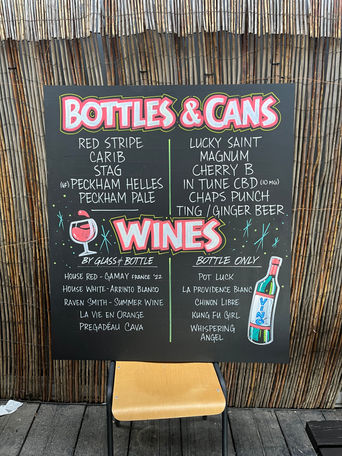 BOTTLES & CANS
RED STRIPE
CARIB
STAG
(GF) PECKHAM HELLES
PECKHAM PALE
LUCKY SAINT
MAGNUM
CHERRY B
IN TUNE CBD (10MG)
CHAPS PUNCH
TING / GINGER BEER
WINES
BY GLASS & BOTTLE
HOUSE RED - GAMAY FRANCE '22
HOUSE WHITE - ARRINTO BLANCO
RAVEN SMITH - SUMMER WINE
LA VIE EN ORANGE
PREGADÉAU CAVA
BOTTLE ONLY
POT LUCK
LA PROVIDENCE BLANC
CHINON LIBRE
KUNG FU GIRL
WHISPERING
ANGEL
VINO